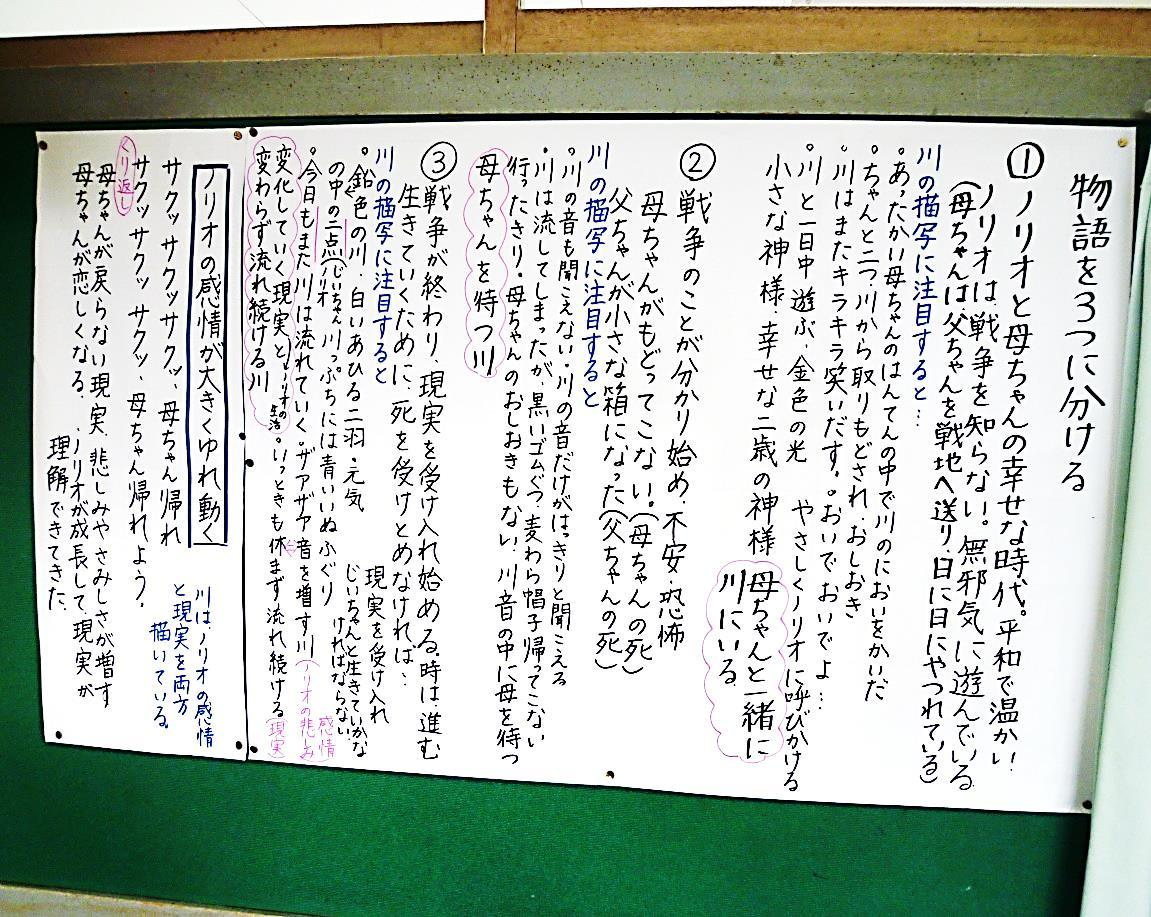 物語を3つに分ける
①ノリオと母ちゃんの幸せな時代。平和で温かい
ノリオは、戦争を知らない。無邪気に遊んでいる
(母ちゃんは父ちゃんを戦地へ送り、日に日にやつれている)
川の描写に注目すると…
。あったかい母ちゃんのはんてんの中で川のにおいをかいだ
。ちゃんと二つ、川から取りもどされ、おしおき
。川はまたキラキラ笑いだす。。おいでおいでよ…
。川と一日中遊ぶ、金色の光 やさしくノリオに呼びかける
小さな神様・幸せな二歳の神様
母ちゃんと一緒に
川にいる
②戦争のことが分かり始め、不安・恐怖
母ちゃんがもどってこない。(母ちゃんの死)
父ちゃんが小さな箱になった(父ちゃんの死)
川の描写に注目すると
。川の音も聞こえない・川の音だけがはっきりと聞こえる
・川は流してしまったが、黒いゴムぐつ、麦わら帽子帰ってこない
行ったきり・母ちゃんのおしおきもない、川音の中に母を待つ
母ちゃんを待つ川
③戦争が終わり、現実を受け入れ始める。時は進む
生きていくために、死を受けとめなければ…
川の描写に注目すると
現実を受け入れ
。鉛色の川、白いあひる二羽・元気
じいちゃんと生きていかな
ければならない
の中の二点(じいちゃん ノリオ 川っぷちには青いいぬふぐり
。今日もまた川は流れていく。ザアザア音を増す川(ノリオの悲しみ)
感情
変化していく現実と(ノリオの生活)。いっときも休まず流れ続ける(現実)
変わらず流れ続ける川
ノリオの感情が大きくゆれ動く
サクッサクッサクッ、母ちゃん帰れ
サクッ サクッ サクッ、母ちゃん帰れよう。
くり返し
川は、ノリオの感情
と現実を両方
描いている。
母ちゃんが戻らない現実、悲しみやさみしさが増す
母ちゃんが恋しくなる、ノリオが成長して、現実が
理解できてきた。